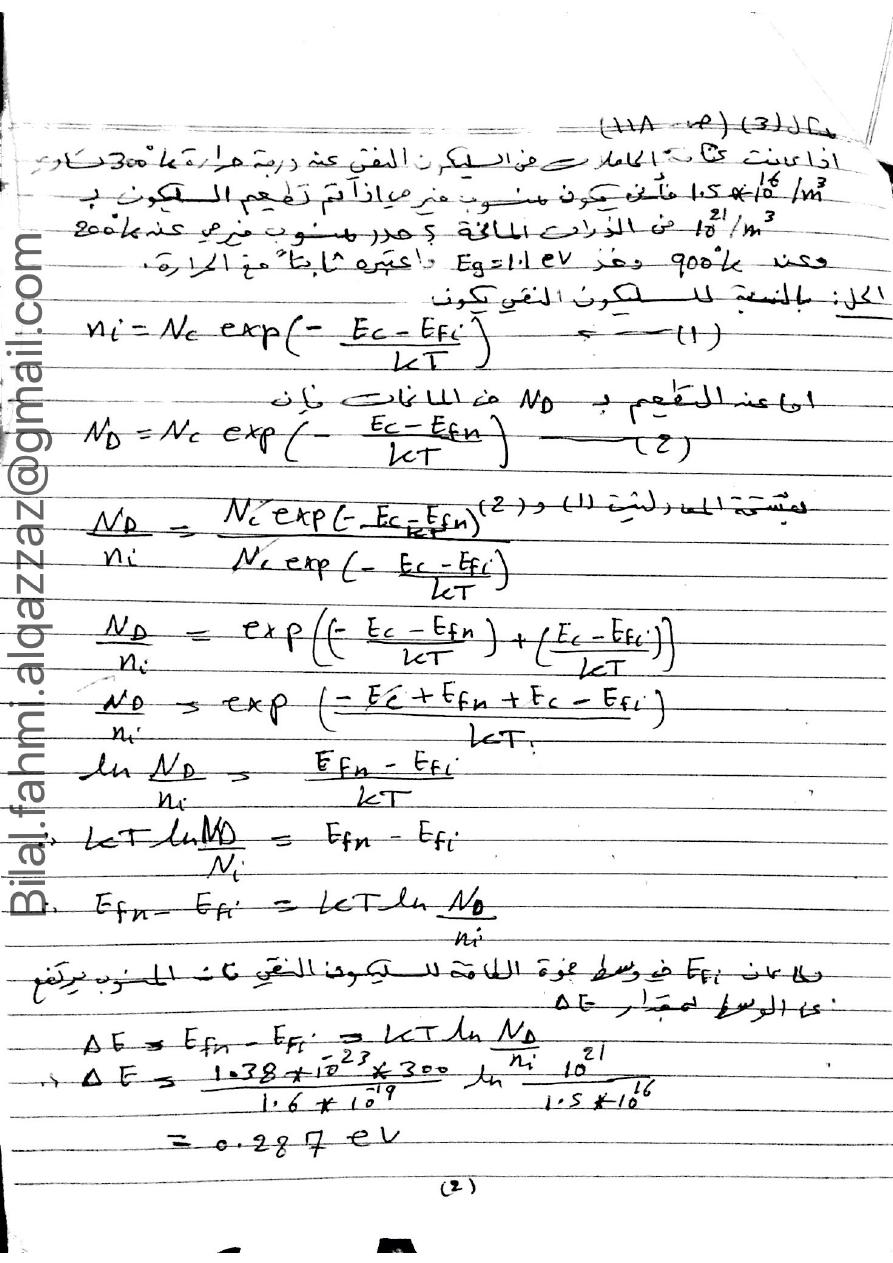 مثال (3) (ص ١١٨)
اذا كانت كثافة الحاملات في السليكون النقي عند درجة حرارة 300°k تساوي
1.5 * 10^16 /m^3 فأين يكون منسوب فيرمي اذا تم تطعيم السليكون بـ
10^21 /m^3 من الذرات المانحة ؟ حدد منسوب فيرمي عند 200°k
وعند 900°k وخذ Eg = 1.1 eV واعتبره ثابتاً مع الحرارة.
الحل: بالنسبة للسليكون النقي يكون
ni = Nc exp(- (Ec - Efi)/kT) ——— (1)
اما عند التطعيم بـ ND من المانحات فإن
ND = Nc exp(- (Ec - Efn)/kT) ——— (2)
بقسمة المعادلتين (1) و (2)
ND/ni = Nc exp(- (Ec - Efn)/kT) / Nc exp(- (Ec - Efi)/kT)
ND/ni = exp((- (Ec - Efn)/kT) + ((Ec - Efi)/kT))
ND/ni = exp((- Ec + Efn + Ec - Efi)/kT)
ln ND/ni = (Efn - Efi)/kT
∴ kT ln ND/Ni = Efn - Efi
∴ Efn - Efi = kT ln ND/ni
ولما كان Efi في وسط فجوة الطاقة للسليكون النقي فان المنسوب يرتفع
عن الوسط بمقدار ΔE
ΔE = Efn - Efi = kT ln ND/ni
∴ ΔE = (1.38 * 10^-23 * 300)/(1.6 * 10^-19) ln 10^21/(1.5 * 10^16)
= 0.287 eV
(2)
Bilal.fahmi.alqazzaz@gmail.com